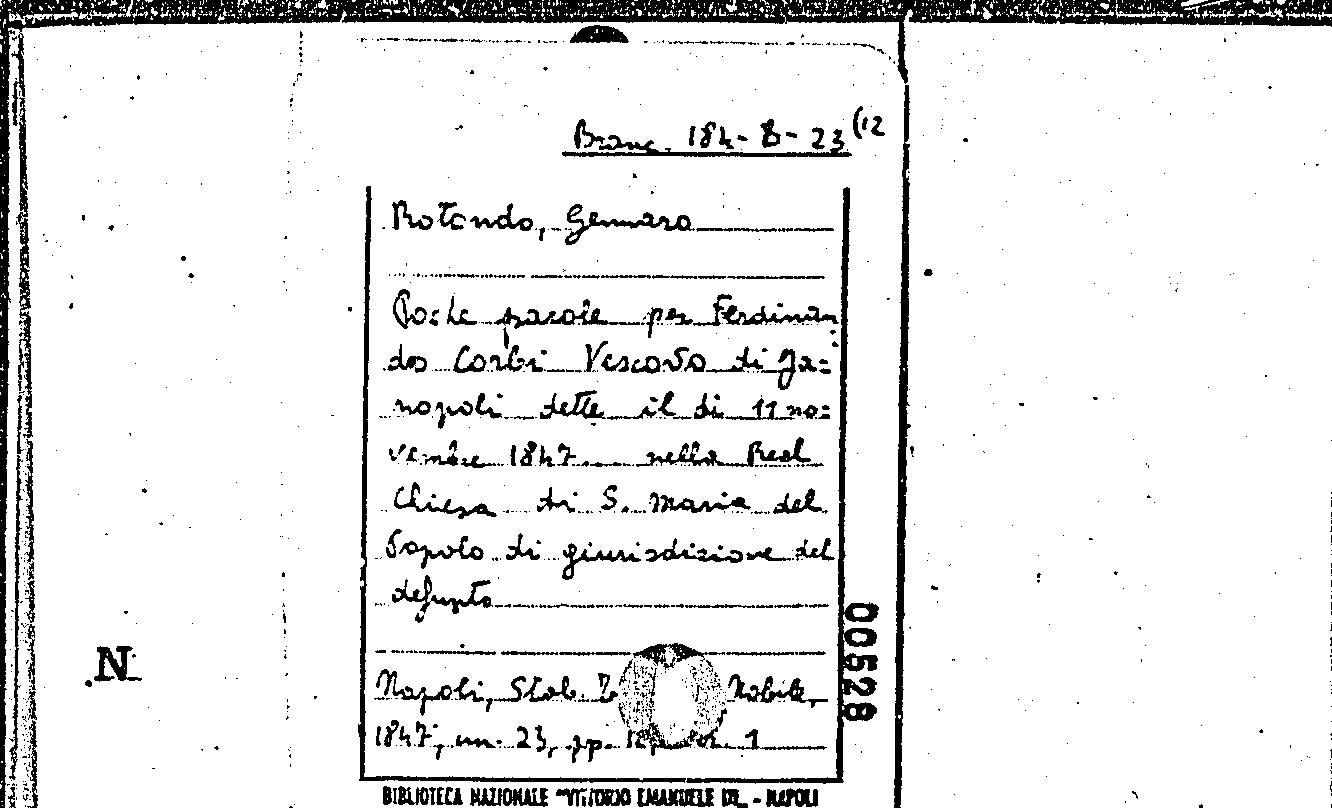 Branc. 184-B-23 (12
Rotondo, Gennaro
Poche parole per Ferdinan
do Corbi Vescovo di Ja=
nopoli dette il di 11 no=
vembre 1847. nella Real
Chiesa di S. Maria del
Popolo di giurisdizione del
defunto
Napoli, Stab. Nobile,
1847, cm. 23, pp. 1
00528
N
BIBLIOTECA NAZIONALE "VITTORIO EMANUELE III" - NAPOLI